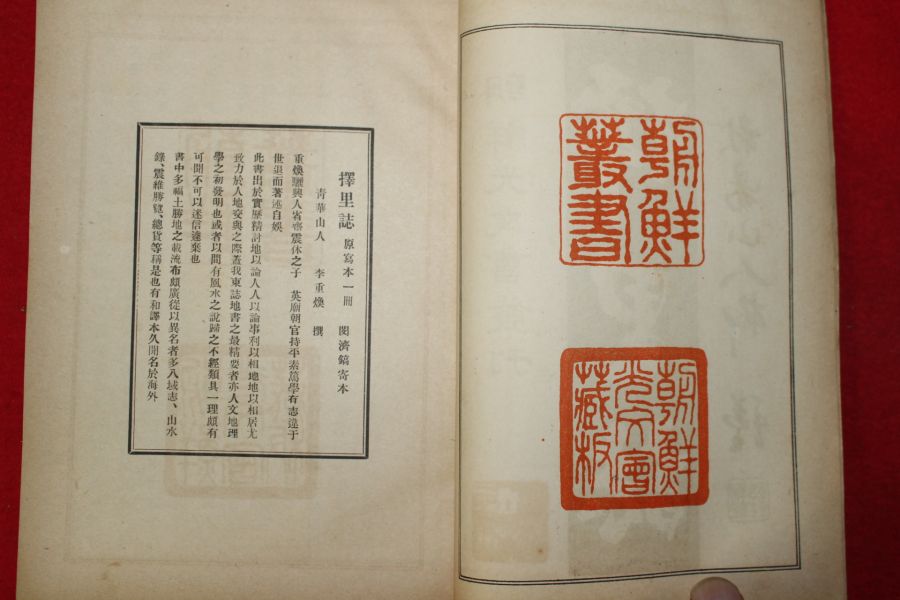 朝鮮
叢書
朝鮮
光文會
藏板
擇里誌 原寫本一冊 閔濟鎬寄本
靑華山人 李重煥 撰
重煥驪興人省齋震休之子 英廟朝官持平素篤學有志違于
世退而著述自娛
此書出於實歷精討地以論人人以論事利以相地地以相居尤
致力於人地交與之際蓋我東誌地書之最精要者亦人文地理
學之初發明也或者以間有風水之說歸之不經類具一理頗有
可聞不可以迷信遽棄也
書中多福土勝地之載流布頗廣從以異名者多八域志、山水
錄、震維勝覽、總貨等稱是也有和譯本久聞名於海外